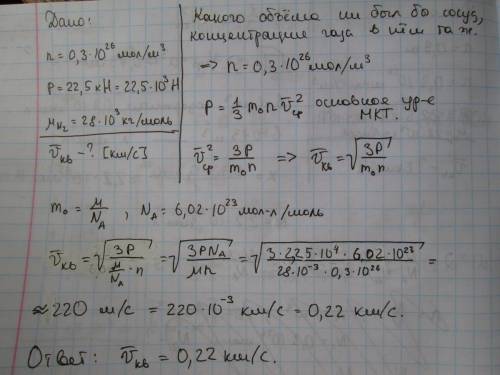 Дано:
n = 0,3·10²⁶ мол/м³
P = 22,5 кН = 22,5·10³ Н
μ_N₂ = 28·10³ кг/моль
v̄_кв - ? [км/с]
Какого объёма ни был бы сосуд,
концентрация газа в нём та ж.
=> n = 0,3·10²⁶ мол/м³
P = 1/3 m₀ n v̄²_ср основное ур-е
МКТ.
v̄²_ср = 3P/(m₀n) => v̄_кв = √(3P/(m₀n))
m₀ = μ/N_A , N_A = 6,02·10²³ мол-л/моль
v̄_кв = √(3P/(μ/N_A · n)) = √(3PN_A/(μn)) = √(3·2,25·10⁴·6,02·10²³/(28·10⁻³·0,3·10²⁶)) =
≈ 220 м/с = 220·10⁻³ км/с = 0,22 км/с.
Ответ: v̄_кв = 0,22 км/с.